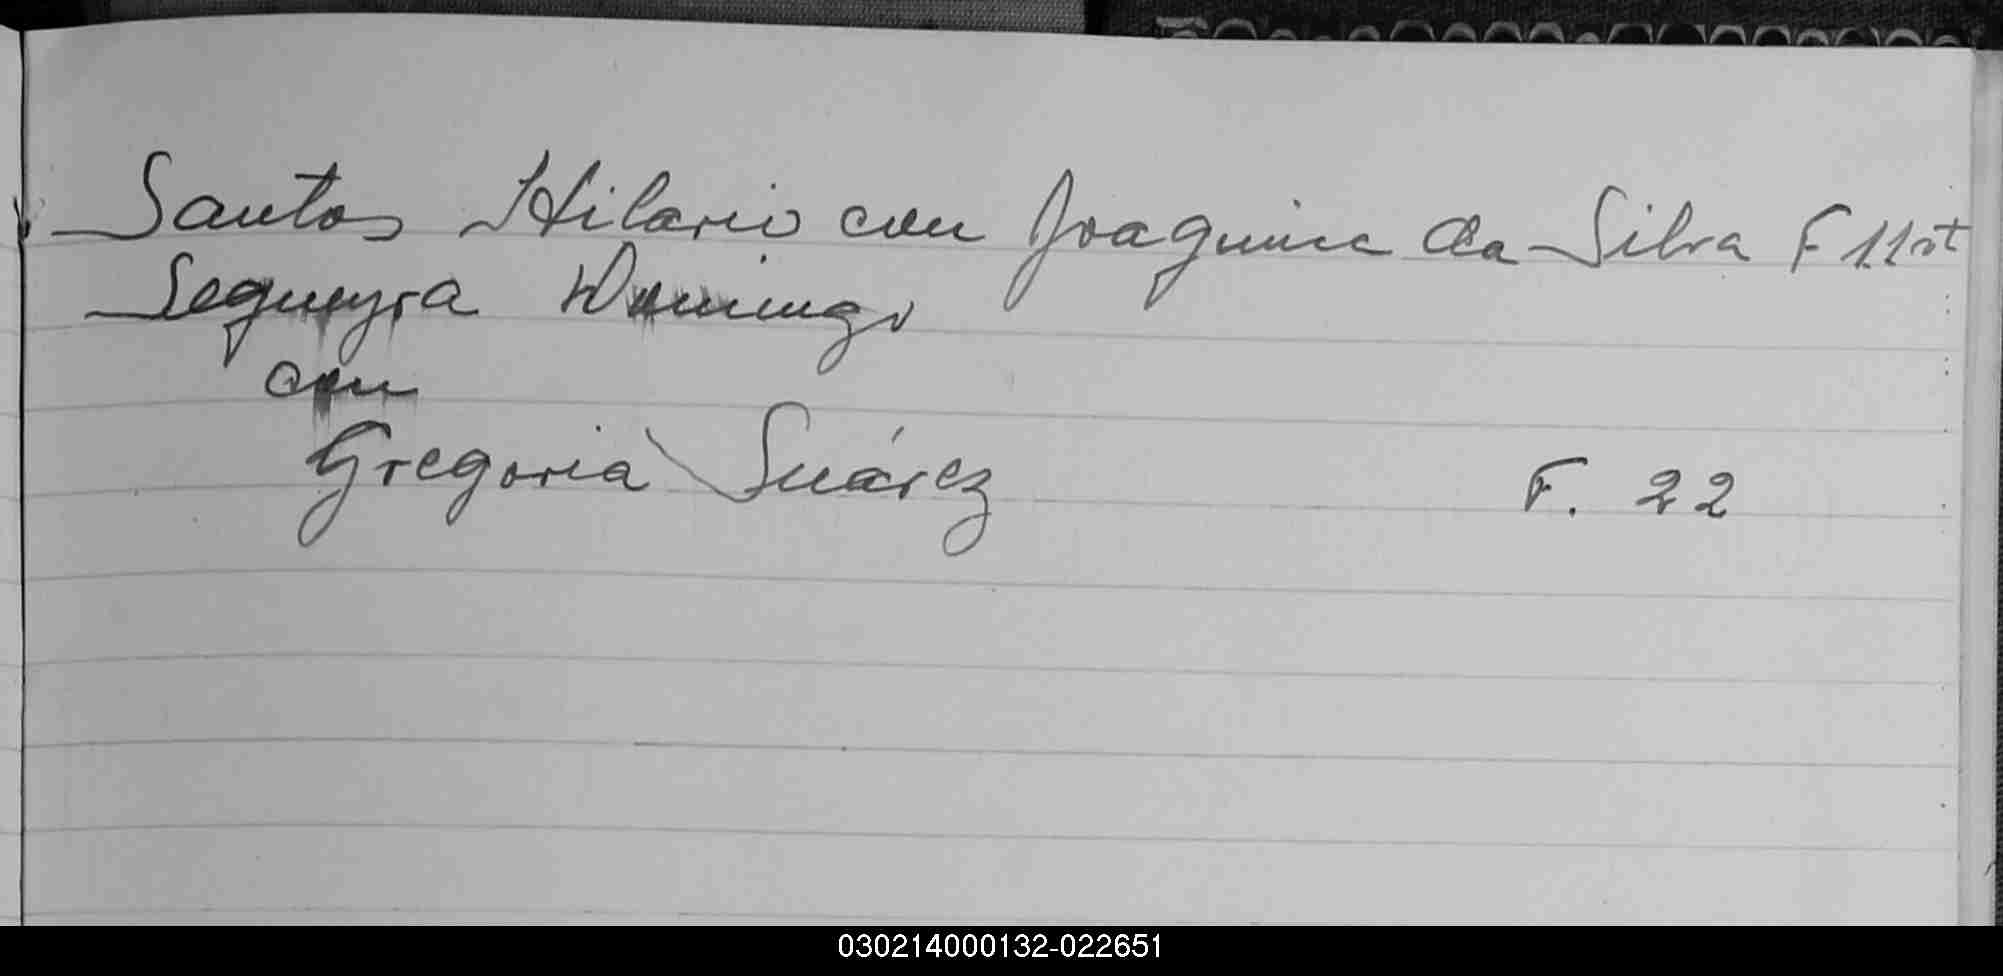 Santos Hilario con Joaquina da Silva F 11 vt
Sequeyra Domingo
con
Gregoria Suárez F. 22
030214000132-022651